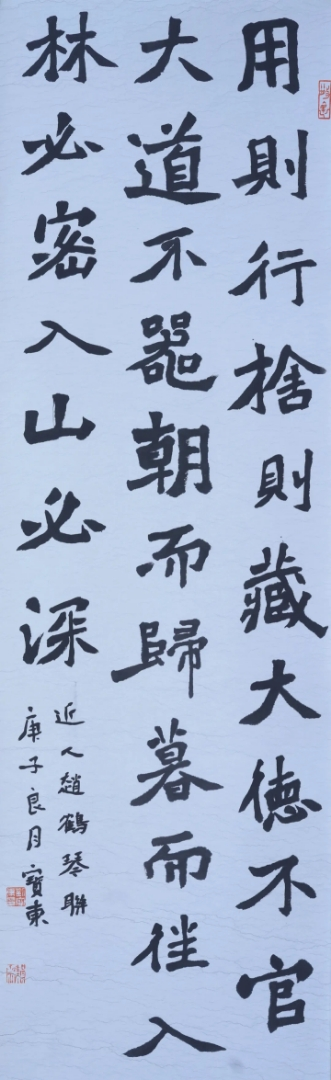 用則行捨則藏大德不官
大道不器朝而歸暮而往入
林必密入山必深
近人趙鶴琴聯
庚子良月寶東